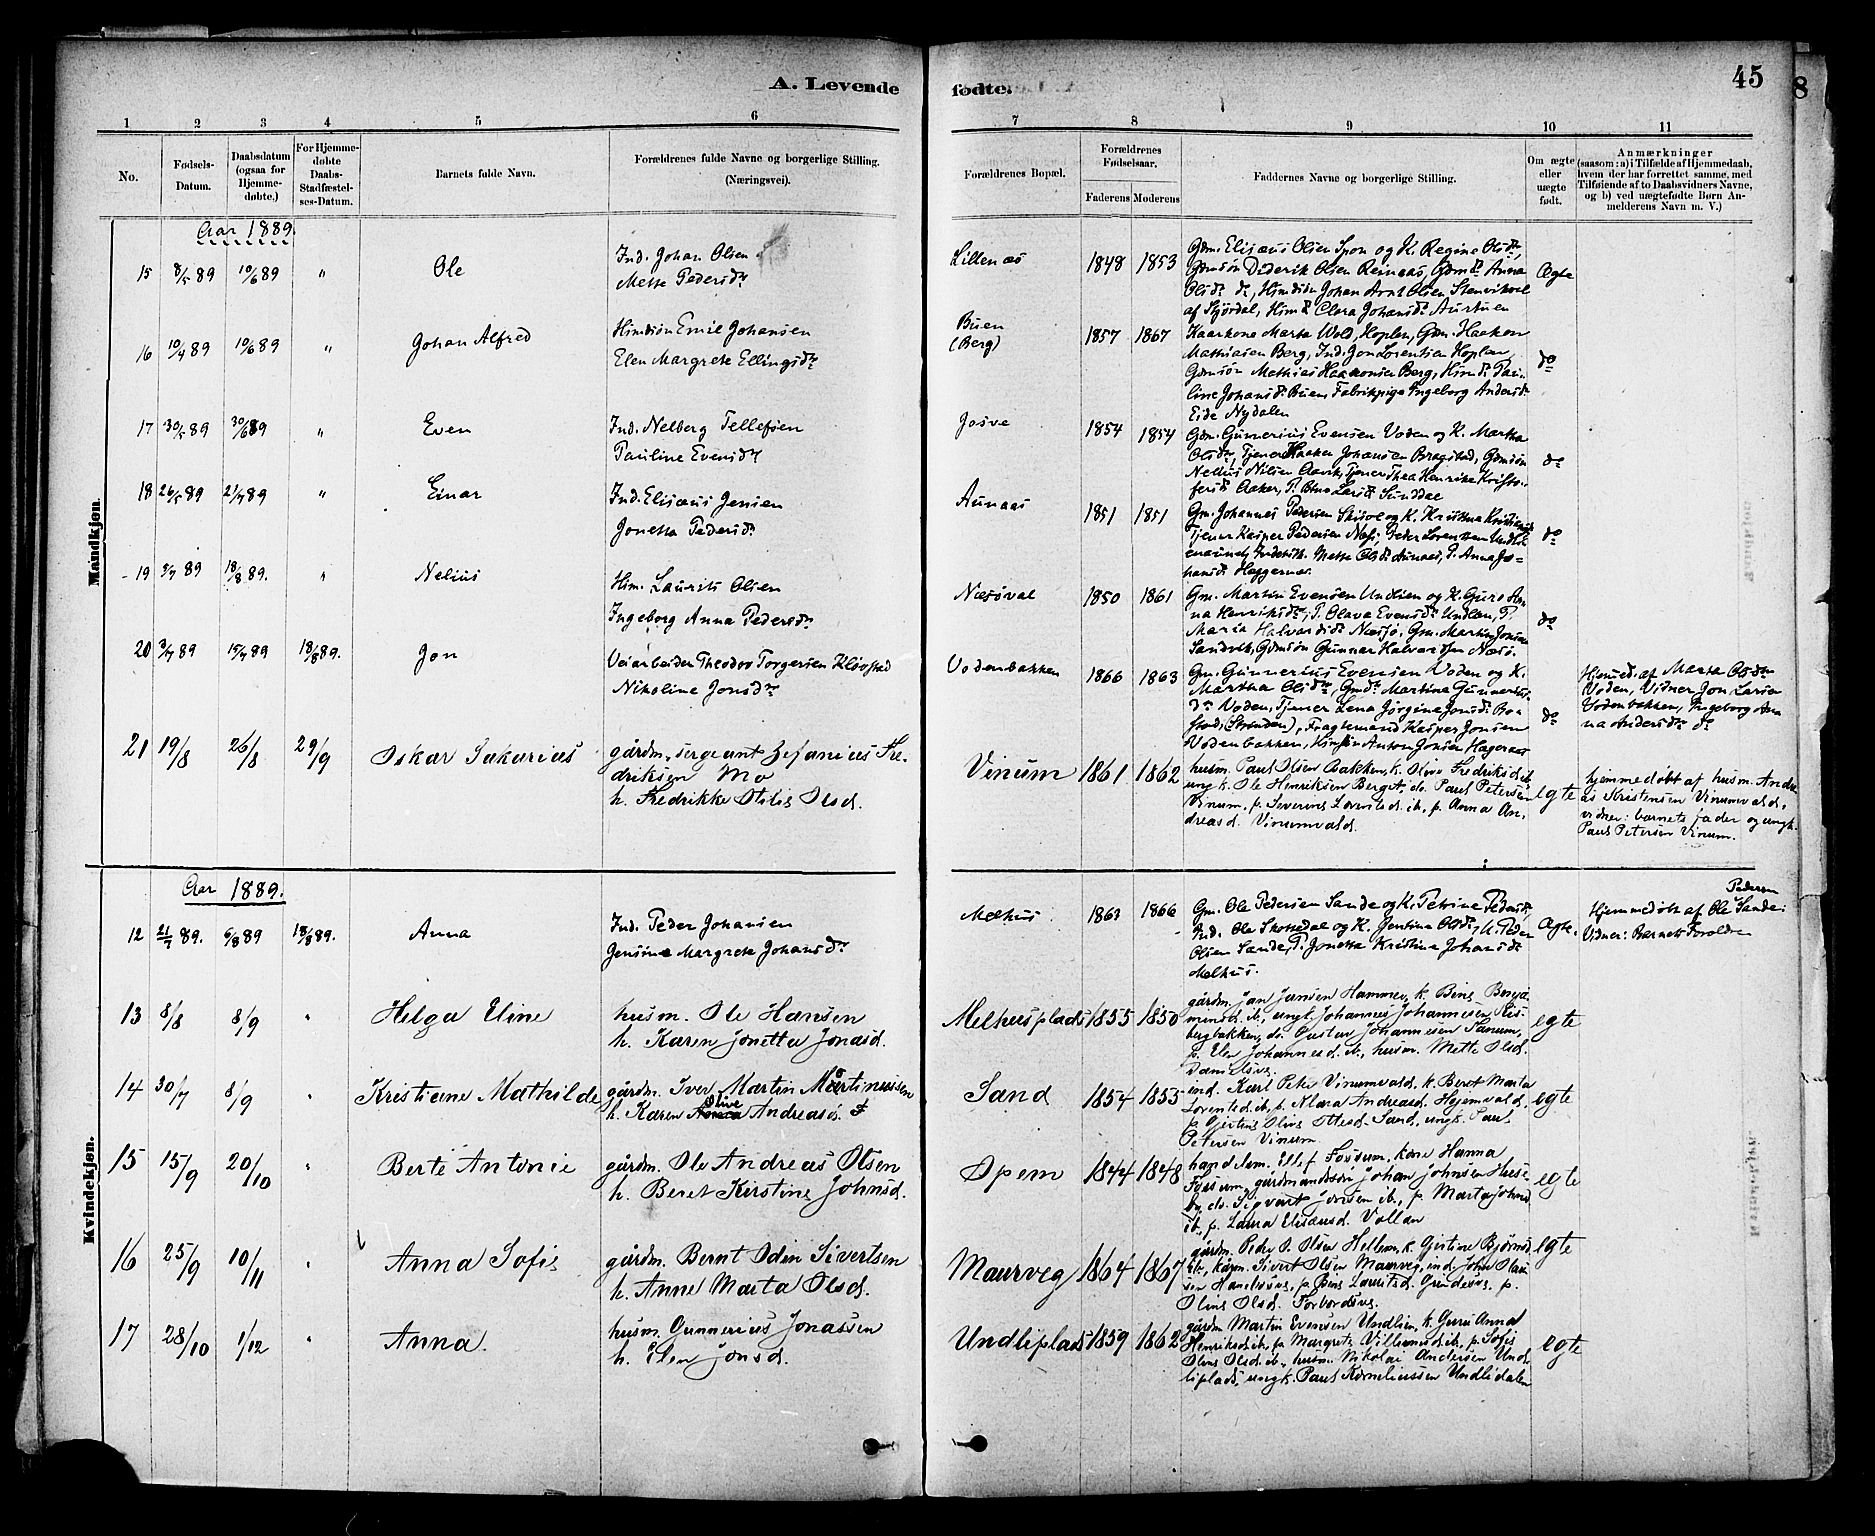 A. Levende fødte.
45
8
1 2 3 4 5 6 7 8 9 10 11
No.
Fødsels-Datum.
Daabsdatum (ogsaa for Hjemme-døbte.)
For Hjemme-døbte Daabs-Stadfæstel-ses-Datum.
Barnets fulde Navn.
Forældrenes fulde Navne og borgerlige Stilling.
(Næringsvei).
Forældrenes Bopæl.
Forældrenes Fødselsaar.
Faderens Moderens
Faddernes Navne og borgerlige Stilling.
Om ægte eller uægte født.
Anmærkninger
(saasom: a) i Tilfælde af Hjemmedaab,
hvem der har forrettet samme, med
Tilføiende af to Daabsvidners Navne,
og b) ved uægtefødte Børn An-
melderens Navn m. V.)
Mandkjøn.
Aar 1889.
15 8/5 89 10/6 89 " Ole
Ind. Johan Olsen
Mette Pedersdr
Lillenæs 1848 1853
Gdm. Elisæus Olsen Spon og K. Regine Olsdr,
Gdmsøn Diderik Olsen Reinaas, Gdmdr Anna
Olsdr do, Hmdsøn Johan Arnt Olsen Stenvikvel
af Stjørdal, Hmdr Clara Johansdr Aurtuen
Ægte
16 10/4 89 10/6 89 " Johan Alfred
Hmdsøn Emil Johansen
Elen Margrete Ellingsdr
Buen
(Berg)
1857 1867
Kaarkone Marta Wold, Hoplen, Gm. Haakon
Mathiasen Berg, Ind. Jon Lorentsen Hoplen,
Gdmsøn Mathias Haakonsen Berg, Hmdr Pau-
line Johansdr Buen, Fabrikpige Ingeborg Andersdr
Eide Nydalen
do
17 30/5 89 30/6 89 " Even
Ind. Nelberg Tellefsen
Pauline Evensdr
Jøsve 1854 1854
Gdm. Gunnerius Evensen Voden og K. Martha
Olsdr, Tjener Haaken Johansen Bragstad, Gdmsøn
Nelius Nilsen Aavik, Tjener Thea Henrike Kristo-
fersdr Aaker, P. Larsdr Sunddal
do
18 26/5 89 21/7 89 " Einar
Ind. Elisæus Jensen
Jonetta Pedersdr
Aunaas 1851 1851
Gm. Johannes Pedersen Skisvol og K. Kristina
Tjener Kasper Pedersen Næss, Peder Lorentsen
Mette Olsdr Aunaas, P. Anna Jo-
hansdr Heggernæs
do
19 3/7 89 18/8 89. " Nelius
Hm. Laurits Olsen
Ingeborg Anna Pedersdr
Næsøval 1850 1861
Gm. Martin Evensen Undlien og K. Guro An-
na Henriksdr, P. Olava Evensdr Undlien, P.
Maria Halvardsdr Næssø, Gm. Martin Jonsen
Sandvik, Gdmsøn Gunner Halvardsen Næsø.
do
20 3/7 89 15/7 89 18/8 89. Jon
Veiarbeider Theodor Torgersen Kløvstad
Nikoline Jonsdr
Vodenbakken 1866 1863
Gm. Gunnerius Evensen Voden og K.
Martha Olsdr, Gmdr Martina Gunnerius-
dr Voden, Tjener Lena Jørgine Jonsdr
(Stranden), Kasper Jonsen
Vodenbakken, Anton Jonsen Hegernæs
do
Hjmed. af Marta Olsdr
Voden, Vidner Jon Larsen
Vodenbakken, Ingeborg An-
na Andersdr do
21 19/8 26/8 29/9 Oskar Sakarias
gårdm., sergeant Zefanias Fre-
driksen Mo
h. Fredrikke Otilie Olsd.
Vinum 1861 1862
husm. Paul Olsen Bakken, k. Olive Fredriksd. ib.
ungk. Ole Henriksen Berget, do. Paul Petersen
Vinum, p. Severine Lorentsd. ib., p. Anna An-
dreasd. Vinumvald.
egte
hjemmedøbt af husm. Andre-
as Kristensen Vinumvald,
vidner: barnets fader og ungk.
Paul Petersen Vinum.
Kvindekjøn.
Aar 1889.
12 21/7 89. 6/8 89 18/8 89. Anna
Ind. Peder Johansen
Jensine Margrete Johansdr
Melhus 1863 1866
Gm. Ole Pedersen Sande og K. Petrine Pedersdr,
Ind. Ole Skottedal og K. Jentina Olsdr, U. Peder
Olsen Sande, P. Jonetta Kristina Johansdr
Melhus.
Ægte.
Pedersen
Hjemmedøbt af Ole Sande:
Vidner: Barnets Forældre
13 8/8 8/9 " Helga Eline
husm. Ole Hansen
h. Karen Jonetta Jonasd.
Melhusplads 1855 1850
gårdm. Jan Jansen Hammer, k. Benja-
minsd. ib., ungk. Johannes Johannesen Ris-
bergbakken, do. Gustav Johannesen Vinum,
p. Elen Johannesd. ib., husm. Mette Olsd.
egte
14 30/7 8/9 " Kristiane Mathilde
gårdm. Iver Martin Martinussen
h. Karen Olive Andreasd.
Sand 1854 1855
ind. Karl Peter Vinumvald, k. Beret Marta
Lorentsd. ib., p. Klara Andreasd. Hjemvald,
p. Gjertine Olive Ottesd. Sand, ungk. Paul
Petersen Vinum
egte
15 15/9 20/10 " Berte Antonie
gårdm. Ole Andreas Olsen
h. Beret Kirstine Johnsd.
Opem 1844 1848
handelsm. Ellef Fossum, kone Hanna
Fossum, gårdmandssøn Johan Johnsen Huse-
by, do. Sigvart Jonsen ib., p. Marta Johnsd
ib., p. Laura Elisæusd. Vollan
egte
16 25/9 10/11 " Anna Sofie
gårdm. Bernt Odin Sivertsen
h. Anne Marta Olsd.
Maurveg 1864 1867
gårdm. Peder O. Olsen Hellem, k. Gjertine Bjørnsd.
ib., kårm. Sivert Olsen Maurveg, ind. John Ola-
p.
Oline Olsd. Forbordsve.
egte
17 28/10 1/12 " Anna.
husm. Gunnerius Jonassen
h. Elen Jonsd.
Undliplads 1859 1862
gårdm Martin Evensen Undlien, k. Guru Anna
Henriksd. ib., p. Margrete Villumsd. ib., p. Sofie
Oline Olsd. ib., husm. Nikolai Andersen Und-
liplads, ungk. Paul Korneliussen Undlidalen
egte